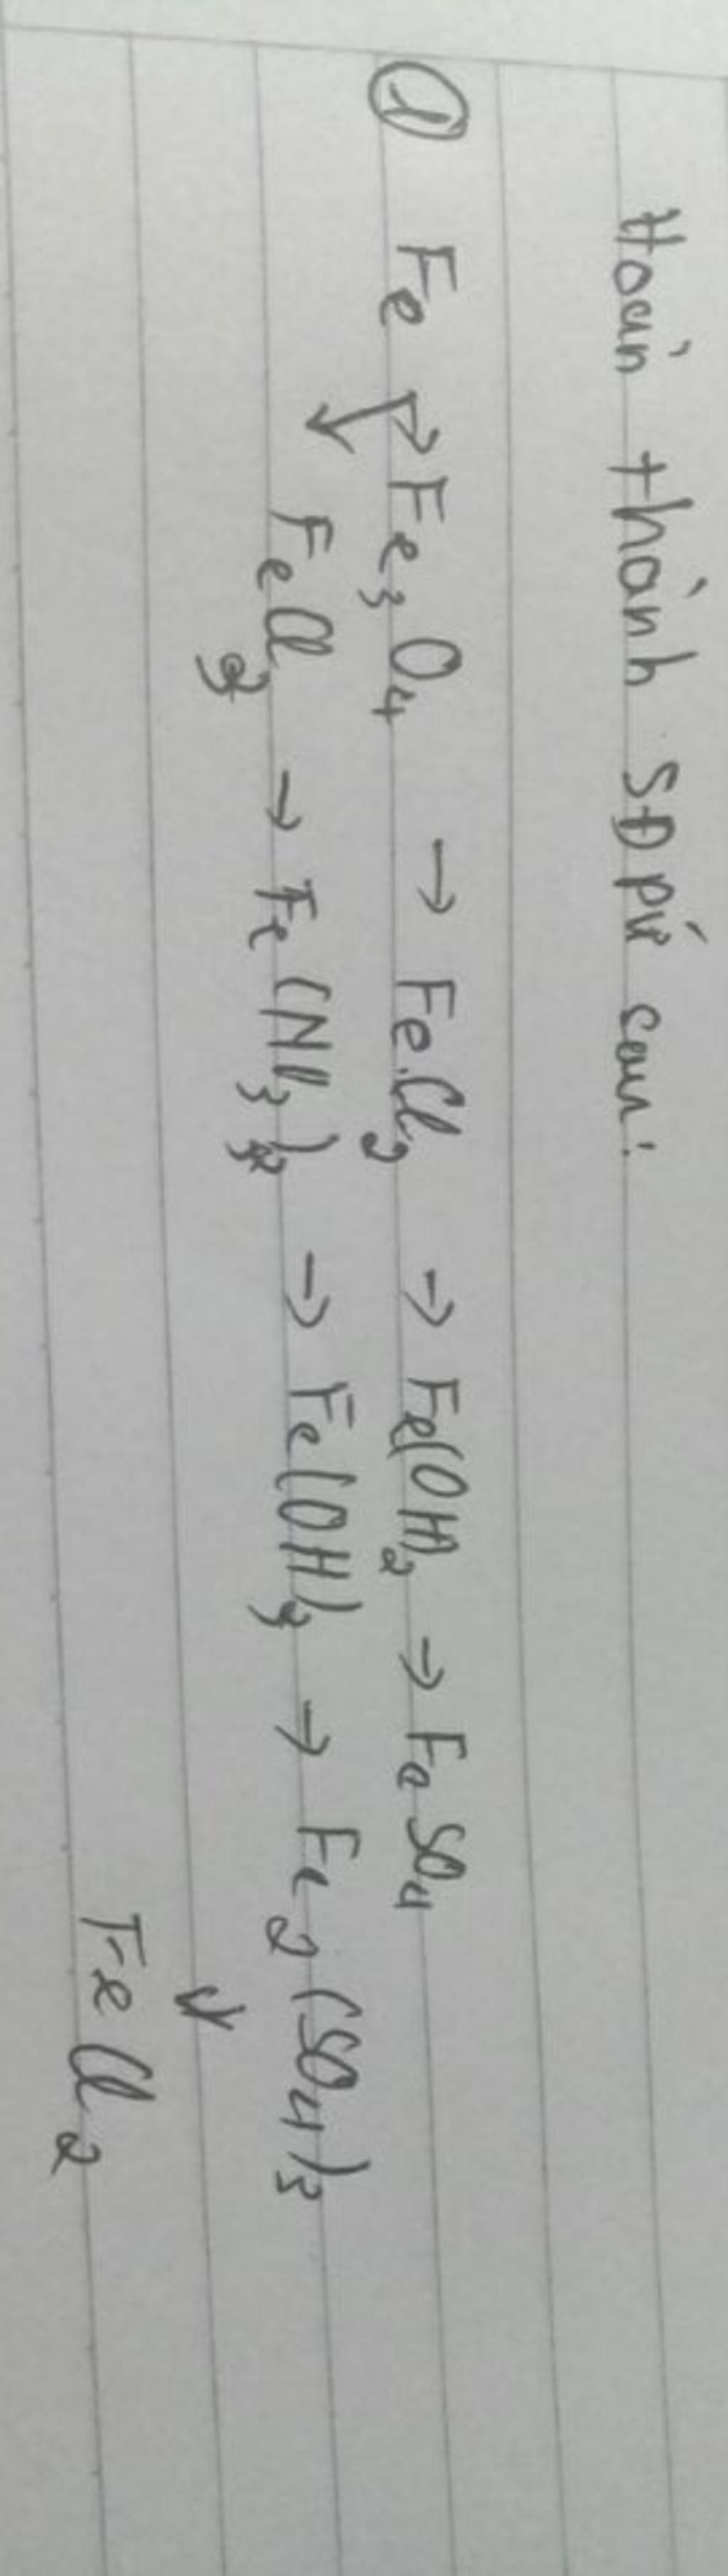 Hoàn thành SĐpứ sau:
① Fe → Fe3O4 → FeCl2 → Fe(OH)2 → FeSO4
↓ FeCl3 → Fe(NO3)3 → Fe(OH)3 → Fe2(SO4)3
↓
FeCl2